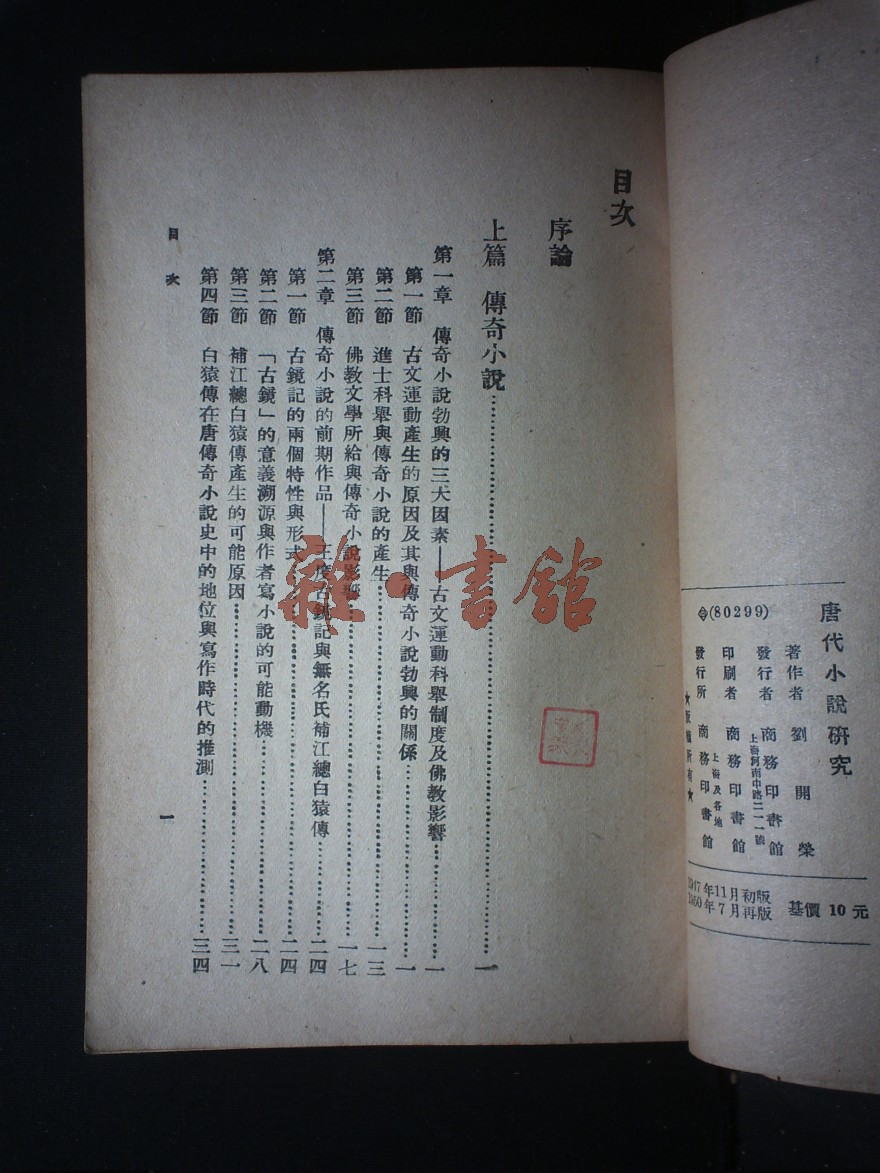 目次
序論
上篇 傳奇小說………一
第一章 傳奇小說勃興的三大因素——古文運動科舉制度及佛教影響………一
第一節 古文運動產生的原因及其與傳奇小說勃興的關係………一
第二節 進士科舉與傳奇小說的產生………一三
第三節 佛教文學所給與傳奇小說影響………一七
第二章 傳奇小說的前期作品——王度古鏡記與無名氏補江總白猿傳………二四
第一節 古鏡記的兩個特性與形式………二四
第二節 「古鏡」的意義溯源與作者寫小說的可能動機………二八
第三節 補江總白猿傳產生的可能原因………三一
第四節 白猿傳在唐傳奇小說史中的地位與寫作時代的推測………三四
目次
一
雜·書館
唐代小說研究
(80299)
著作者 劉開榮
發行者 商務印書館
上海河南中路二一一號
印刷者 商務印書館
發行所 商務印書館
上海及各地
★版權所有★
1947年11月初版
1950年7月再版
基價 10 元